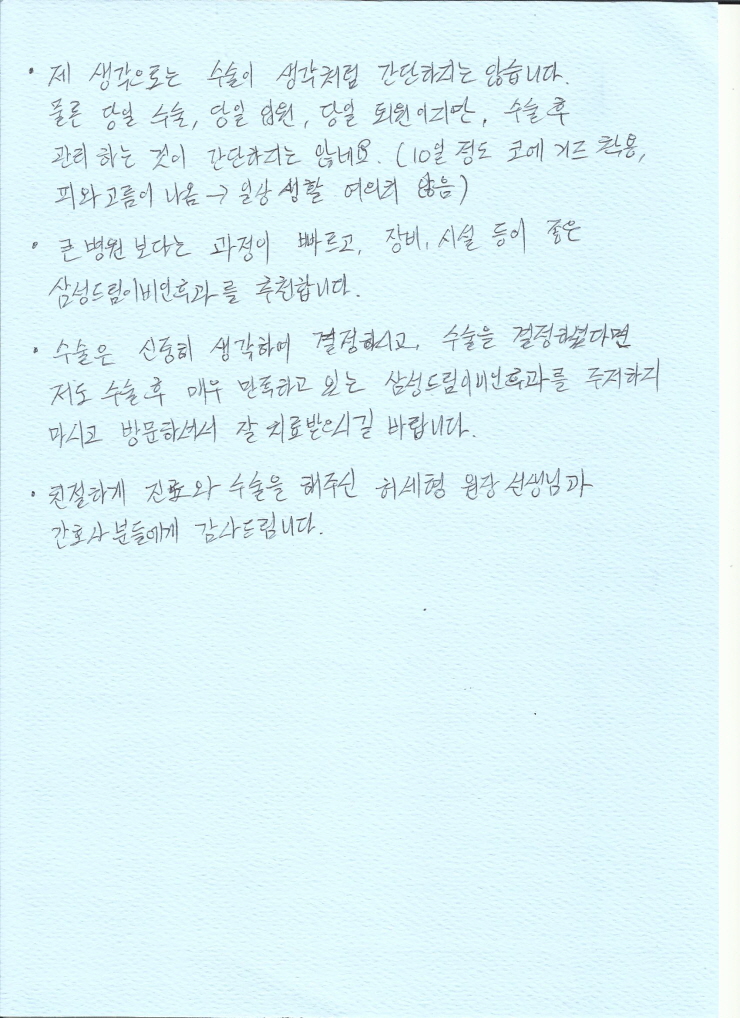 · 제 생각으로는 수술이 생각처럼 간단하지는 않습니다.
물론 당일 수술, 당일 입원, 당일 퇴원이지만, 수술 후
관리 하는 것이 간단하지는 않네요. (10일 정도 코에 거즈 착용,
피와 고름이 나옴 → 일상 생활 여의치 않음)
· 큰 병원 보다는 과정이 빠르고, 장비, 시설 등이 좋은
삼성드림이비인후과를 추천합니다.
· 수술은 신중히 생각하여 결정하시고, 수술을 결정하셨다면
저도 수술 후 매우 만족하고 있는 삼성드림이비인후과를 주저하지
마시고 방문하셔서 잘 치료받으시길 바랍니다.
· 친절하게 진료와 수술을 해주신 허세형 원장 선생님과
간호사 분들에게 감사드립니다.